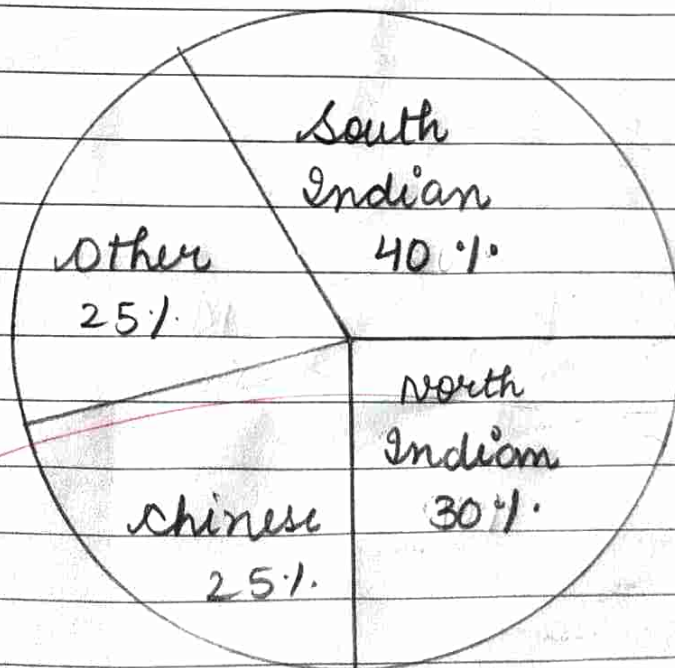 South
Indian
40 %
Other
25%
North
Indian
30%
Chinese
25%